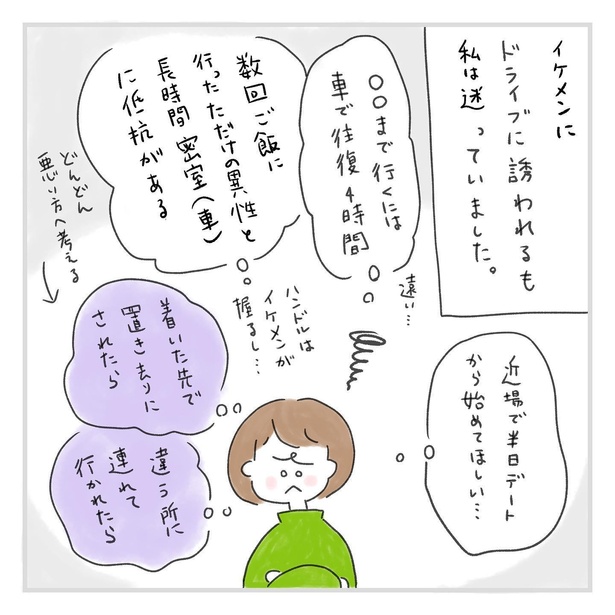 イケメンに
ドライブに誘われるも
私は迷っていました。
〇〇まで行くには
車で往復4時間
遠い…
数回ご飯に
行ったただけの異性と
長時間密室(車)
に低抗がある
ハンドルは
イケメンが
握るし…
どんどん
悪い方へ考える
着いた先で
置き去りに
されたら
違う所に
連れて
行かれたら
近場で半日デート
から始めてほしい…